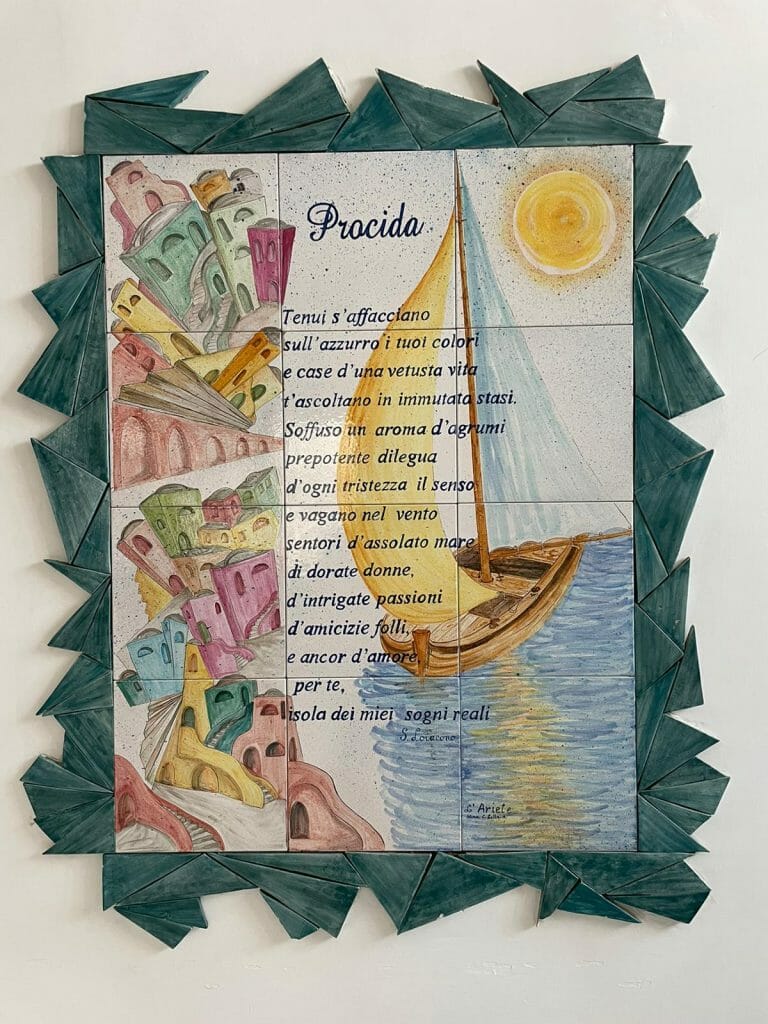 Procida
Tenui s'affacciano
sull'azzurro i tuoi colori
e case d'una vetusta vita
t'ascoltano in immutata stasi.
Soffuso un aroma d'agrumi
prepotente dilegua
d'ogni tristezza il senso
e vagano nel vento
sentori d'assolato mare
di dorate donne,
d'intrigate passioni
d'amicizie folli,
e ancor d'amore,
per te,
isola dei miei sogni reali
S. Loiacono
L'Ariete